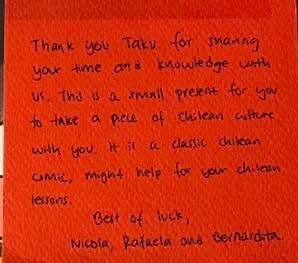 Thank you Taku for sharing
your time and knowledge with
us. This is a small present for you
to take a piece of chilean culture
with you. It is a classic chilean
comic, might help for your chilean
lessons.
Best of luck,
Nicola, Rafaela and Bernardita.